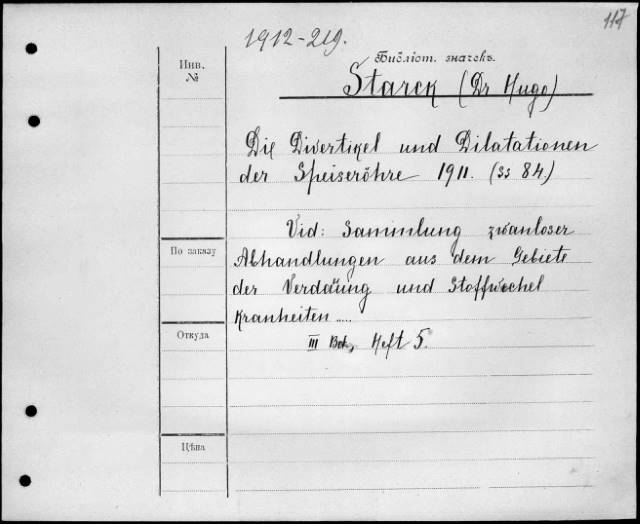 117
1912-219.
Инв.
№
Библіот. значекъ.
Starck (Dr Hugo)
Die Divertikel und Dilatationen
der Speiseröhre 1911. (ss 84.)
Vid: Sammlung zwanloser
Abhandlungen aus dem Gebiete
По заказу
der Verdaüng und Stoffwechel
Kranheiten ....
Откуда
III Bd, Heft 5.
Цѣна